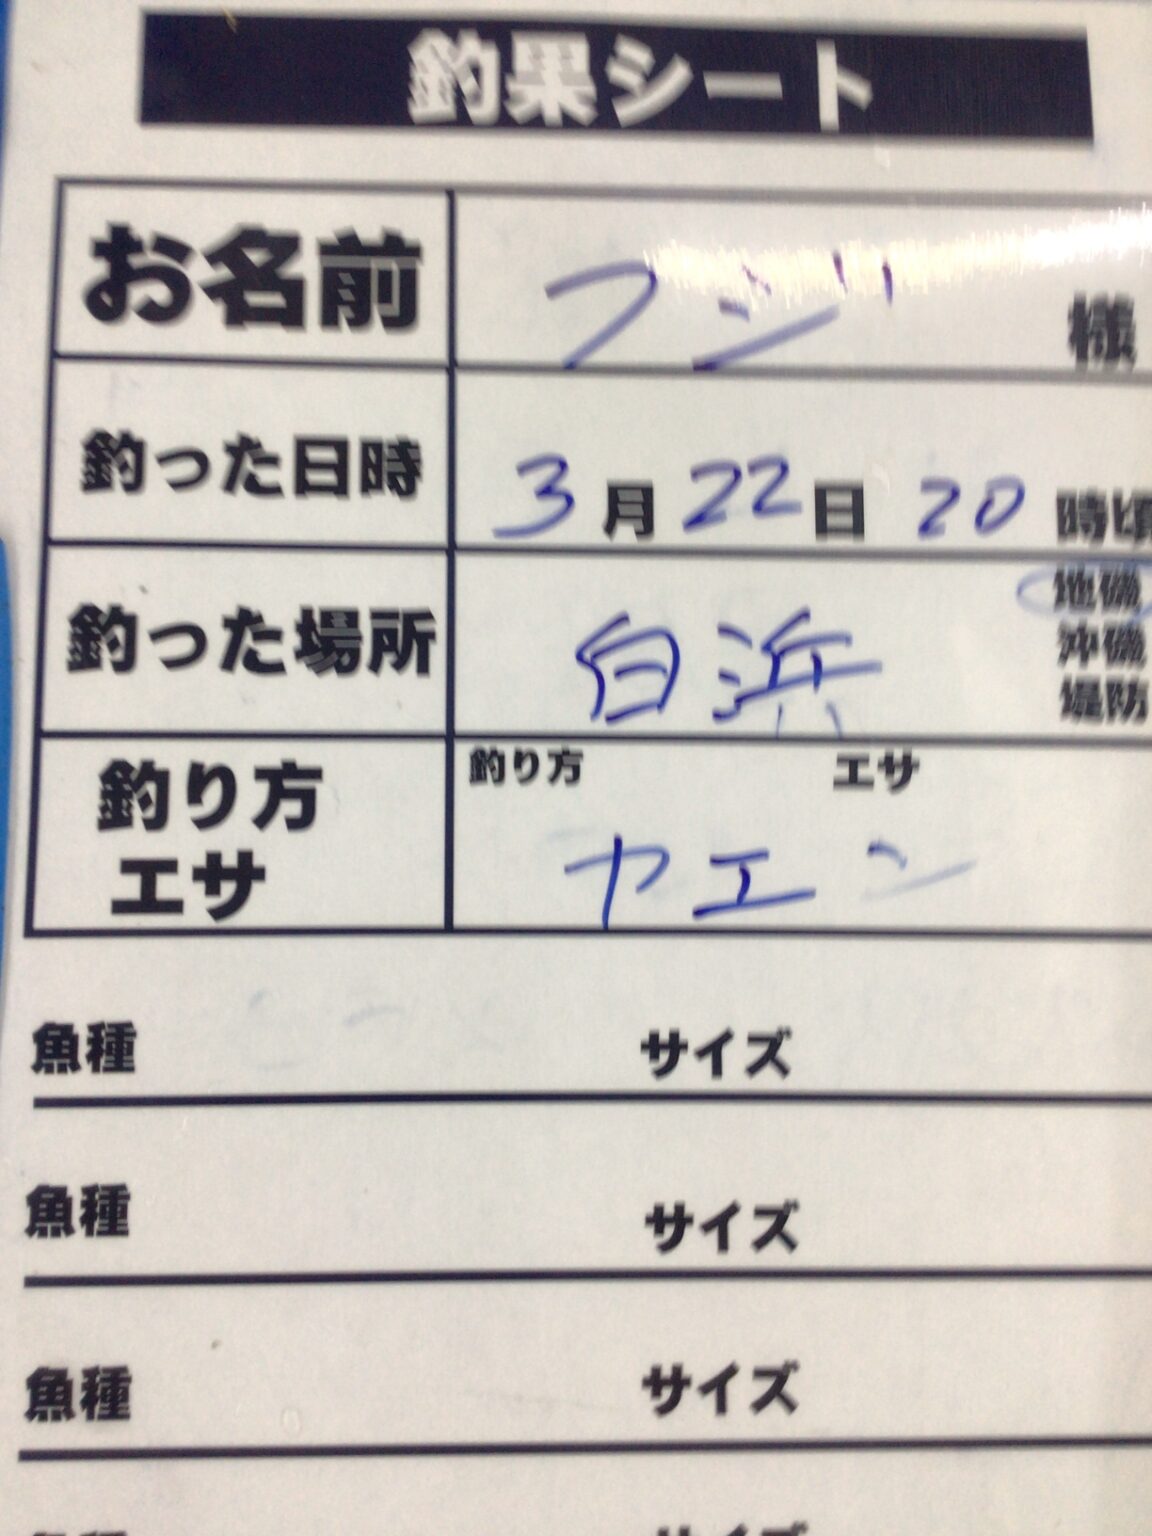 釣果シート
お名前 フジ 様
釣った日時 3月22日 20時頃
釣った場所 白浜 地磯
沖磯
堤防
釣り方 エサ
釣り方
エサ ヤエン
魚種 サイズ
魚種 サイズ
魚種 サイズ